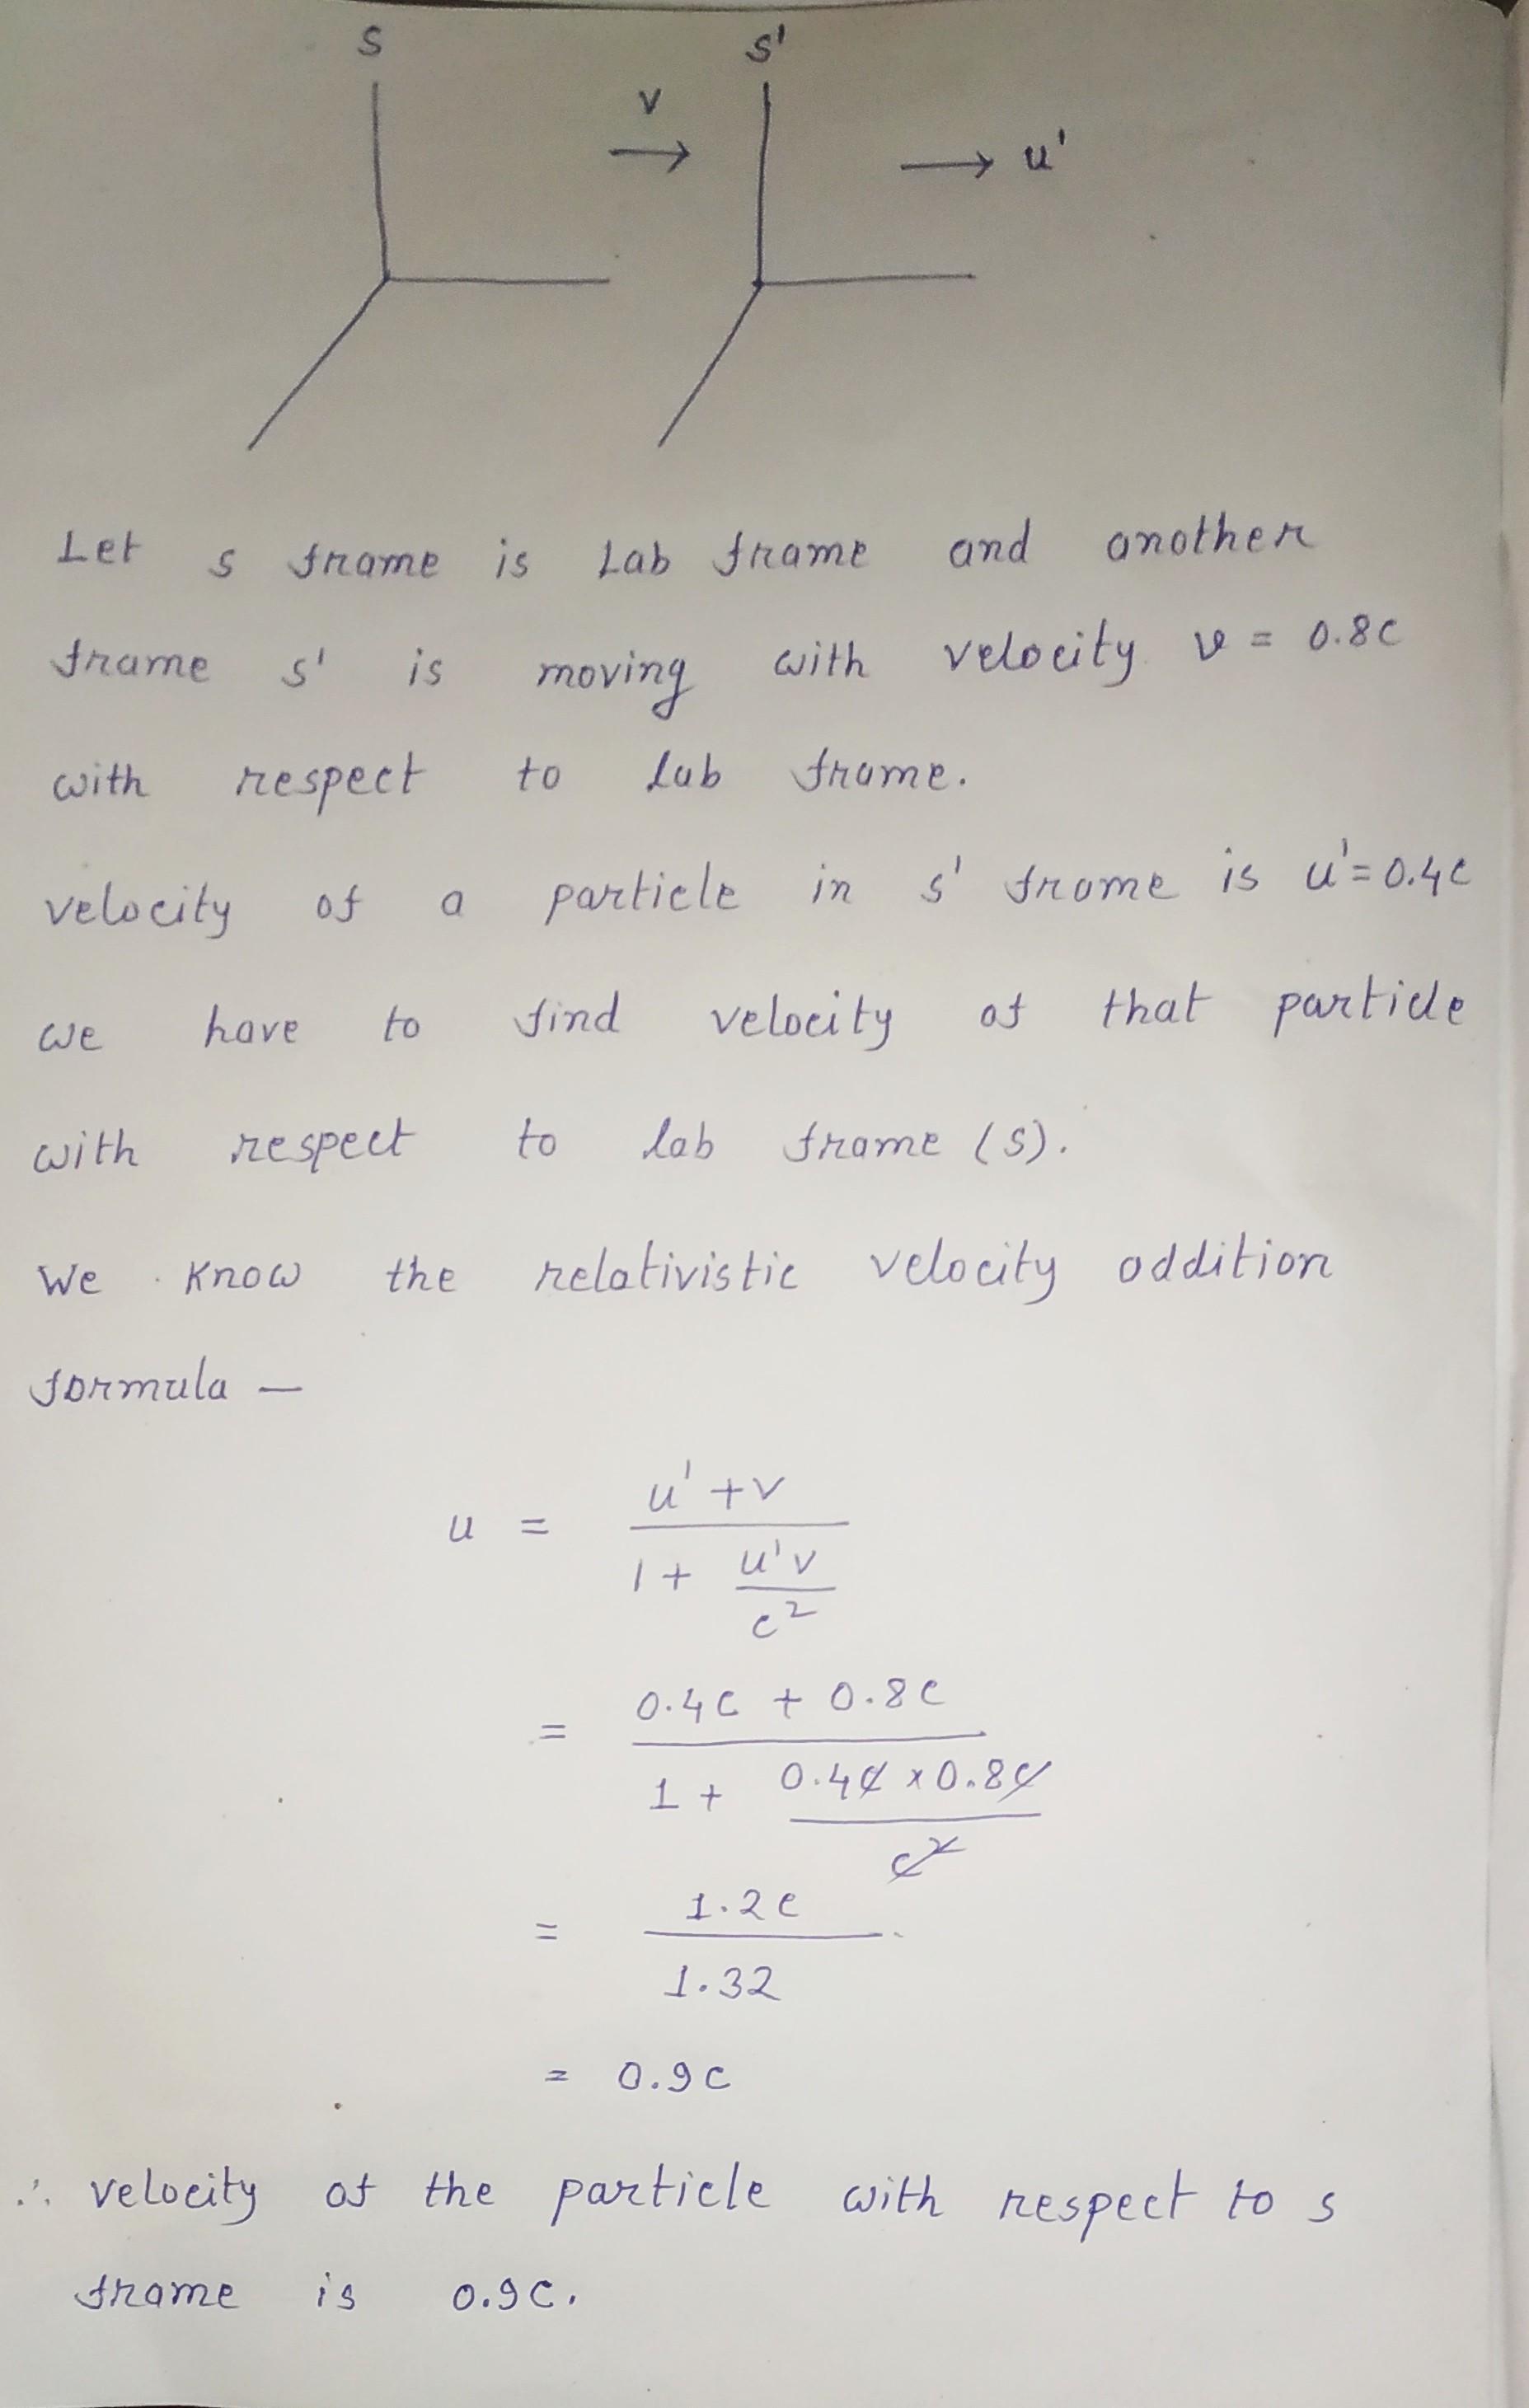 S S'
V
→ → u'
Let s frame is Lab frame and another
frame s' is moving with velocity v = 0.8c
with respect to lab frame.
velocity of a particle in s' frame is u'=0.4c
we have to find velocity of that particle
with respect to lab frame (S).
We know the relativistic velocity addition
formula —
u = (u' + v) / (1 + u'v/c²)
= (0.4c + 0.8c) / (1 + 0.4c × 0.8c/c²)
= 1.2c / 1.32
= 0.9c
∴ velocity of the particle with respect to s
frame is 0.9c.